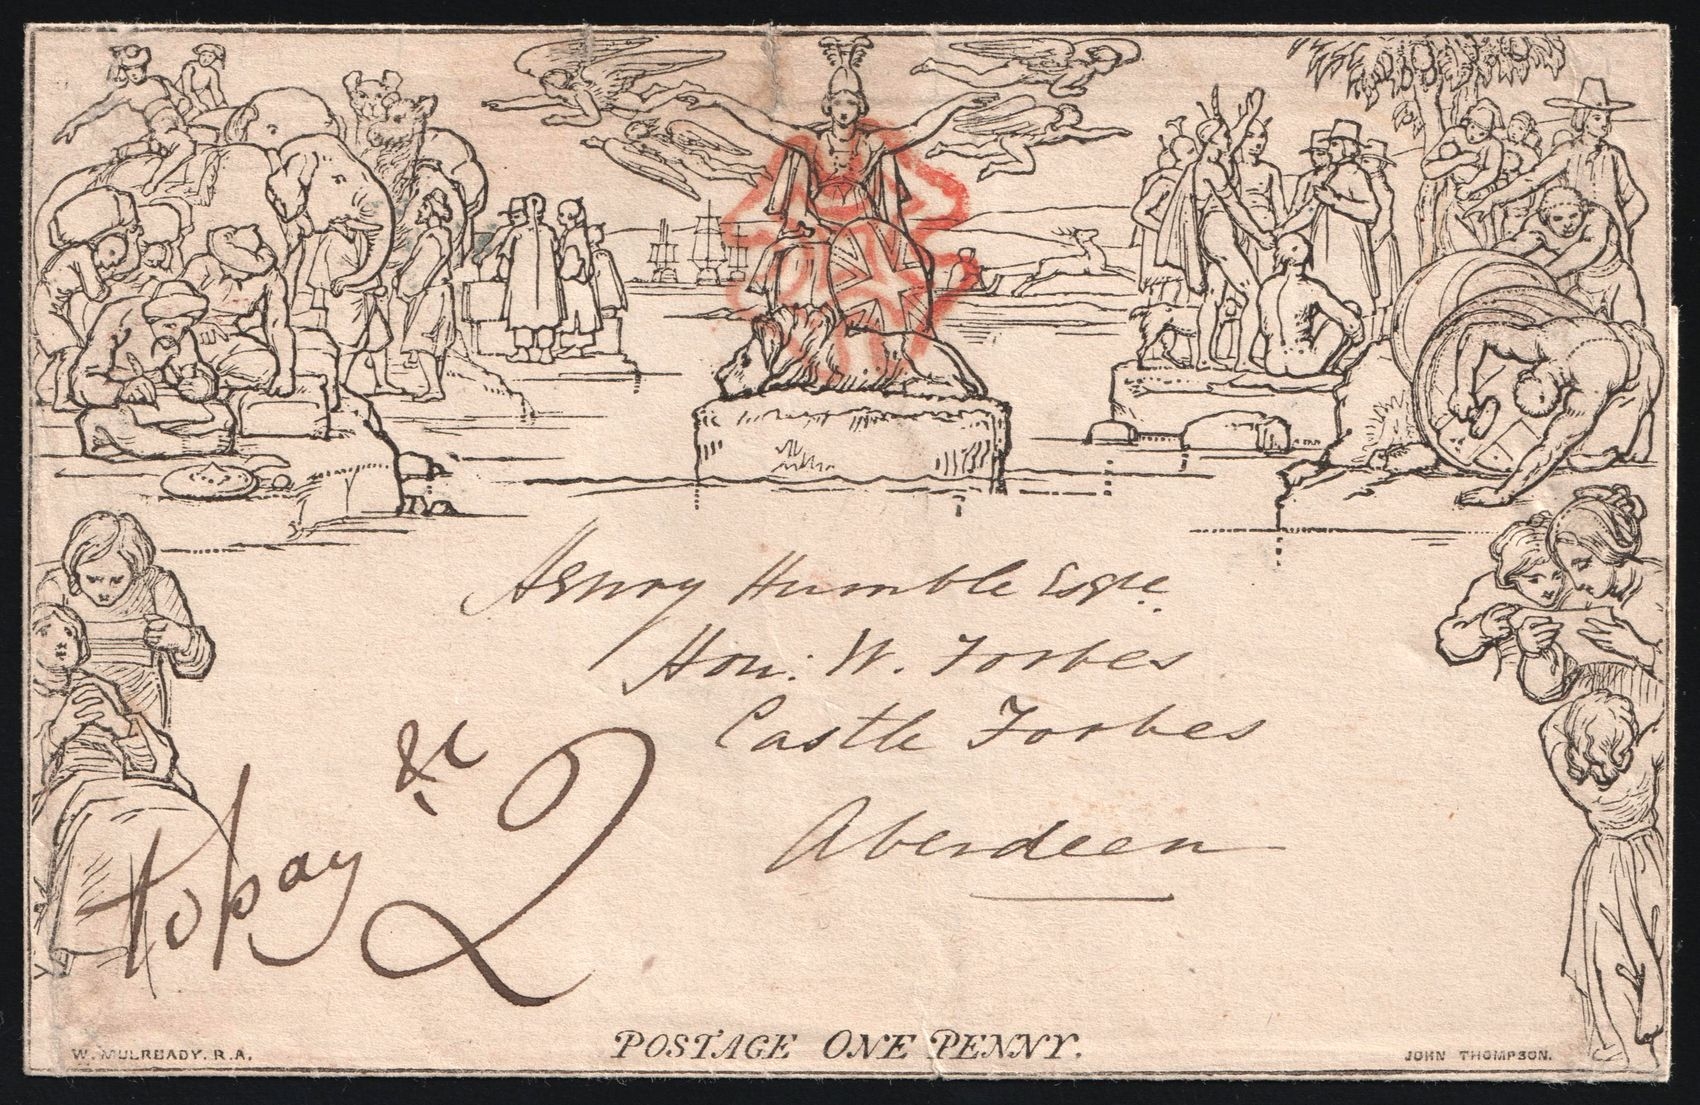 Henry Humble Esqre.
Hon: W. Forbes
Castle Forbes
Aberdeen
&c
to pay 2
POSTAGE ONE PENNY.
W. MULREADY. R.A.
JOHN THOMPSON.